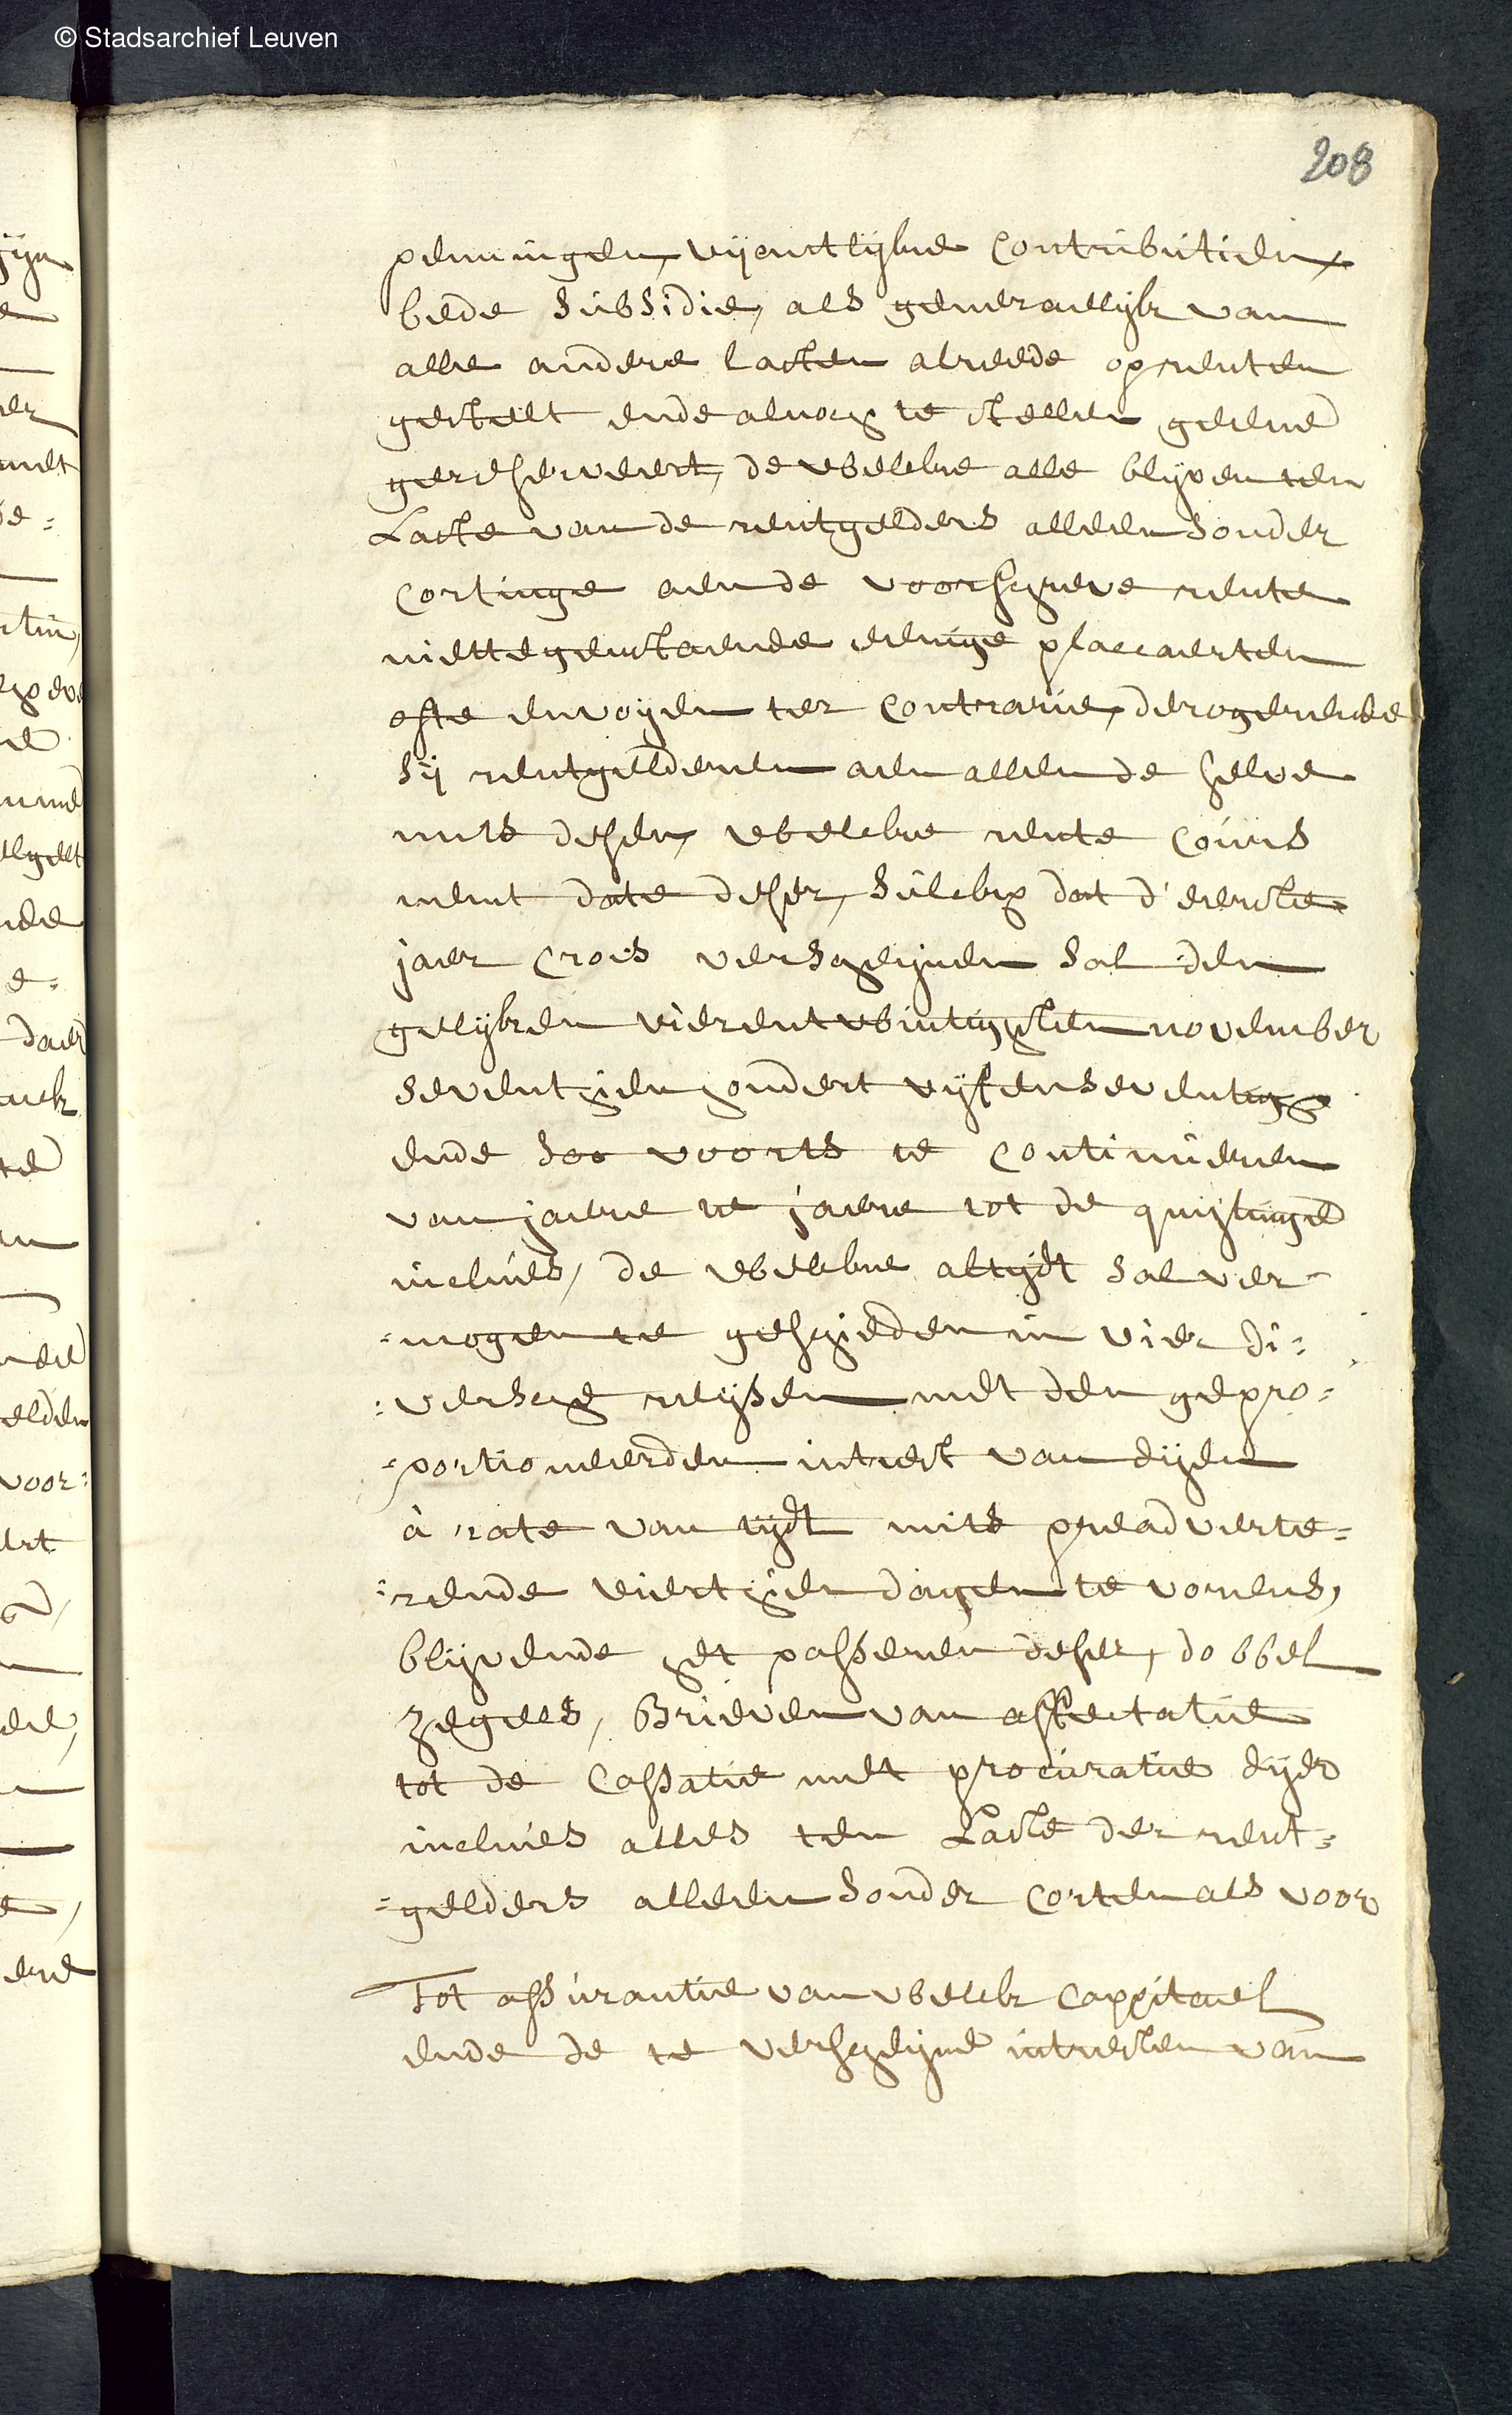 © Stadsarchief Leuven
208
penningen, vijantlijke contributien,
bede subsidie, als generaelijck van
alle andere lasten alreede op renten
gestelt ende alnoch te stellen geene
gereserveert, de welcke alle blijven ten
Laste van de rentgelders alleen sonder
Cortinge aen de voorschreve rente
niettegenstaende eenige placcaerten
ofte envoyen ter contrarie, derogerende
sij rentgelderen aen allen de selve
mits desen, welcke rente cours
nemt date deser, sulckx dat d'eerste
jaer crois verschijnen sal den
gelijcken vierentwintighsten november
seventhien hondert vijfenseventigh
ende soo voorts te continueren
van jaere te jaere tot de quijtinge
incluis, de welcke altijdt sal ver-
-mogen te geschieden in vier di:
:versche reijsen met den gepro:
-portioneerden intrest van dijen
à rate van tijdt mits preadverte=
:rende vierthien dagen te vorens,
blijvende het passeren deser, dobbel
zegels, Brieven van affectatie
tot de Cassatie met procuratie dijer
incluis alles ten Laste der rent=
=gelders alleen sonder corten als voor
Tot assurantie van welck cappitael
ende de te verschijne intresten van